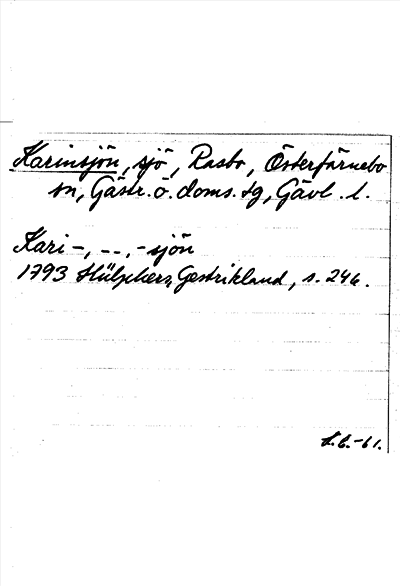 Karinsjön, sjö, Rasbo, Österfärnebo
sn, Gästr. ö. doms. tg, Gävl. l.
Kari-, --, -sjön
1793 Hülphers, Gestrikland, s. 246.
L.C.-61.